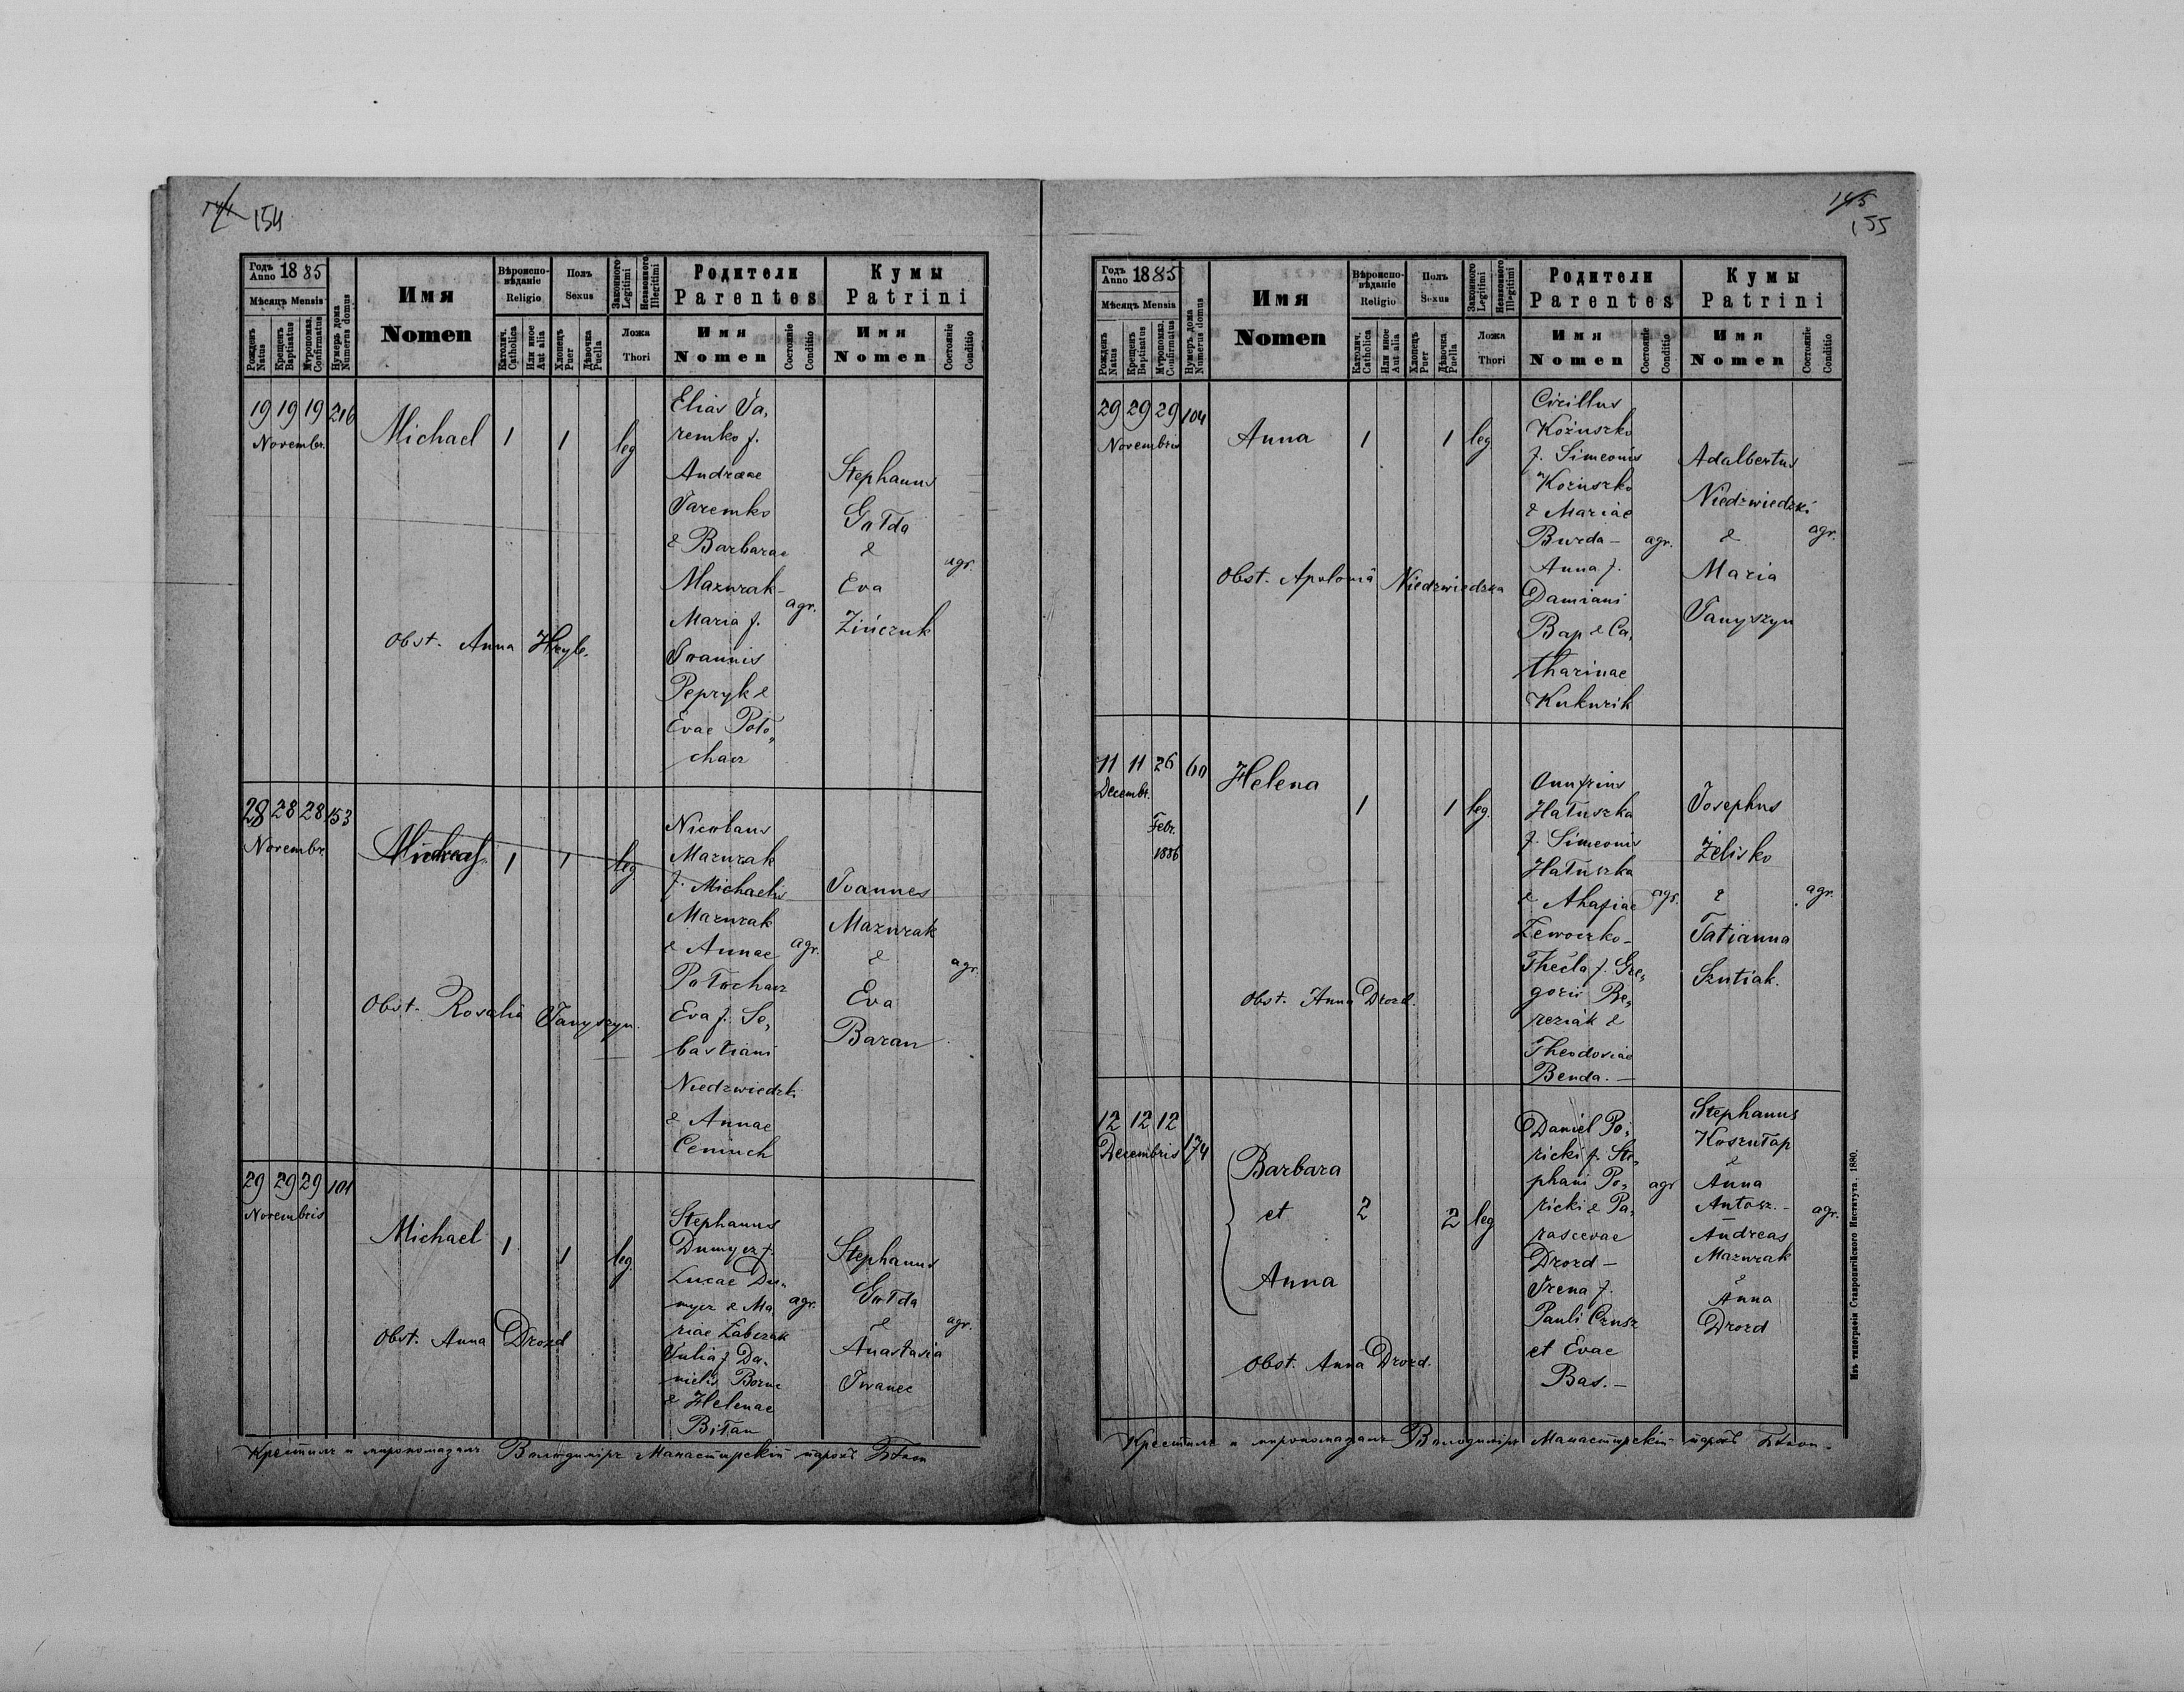 154
Годъ Anno 1885
Мѣсяцъ Mensis
Рожденъ Natus
Крещенъ Baptisatus
Мѵропомаз. Confirmatus
Нумеръ дома Numerus domus
Имя
Nomen
Вѣроиспо-
вѣданіе
Religio
Католич. Catholica
Или иное Aut alia
Полъ
Sexus
Хлопецъ Puer
Дѣвочка Puella
Законного Legitimi
Незаконного Illegitimi
Ложа
Thori
Родители
Parentes
Имя
Nomen
Состояніе Conditio
Кумы
Patrini
Имя
Nomen
Состояніе Conditio
19 19 19 216
Novembr.
Michael 1 1 leg
Obst. Anna Hryb.
Elias Ja,
remko f.
Andreae
Jaremko
& Barbarae
Mazurak-
agr.
Maria f.
Joannis
Pepryk &
Evae Poto,
chacz
Stephanus
Gołda
&
agr.
Eva
Zińczuk
28 28 28 153
Novembr.
1 1 leg.
Obst. Rosalia Janyszyn.
Nicolaus
Mazurak
f. Michaelis
Mazurak
& Annae agr.
Potochacz
Eva f. Se,
bastiani
Niedzwiedzki
& Annae
Ceniuch
Joannes
Mazurak
&
agr.
Eva
Baran
29 29 29 101
Novembris
Michael 1 1 leg.
Obst. Anna Drozd
Stephanus
Dumycz f.
Lucae Du-
mycz & Ma, agr.
riae Łabczak
Julia f. Da-
nielis
& Helenae
Bitan
Stephanus
Gołda
&
agr.
Anastasia
Iwanec
Крестилъ и миропомазалъ Володимиръ Манастирскій парохъ
155
Годъ Anno 1885
Мѣсяцъ Mensis
Рожденъ Natus
Крещенъ Baptisatus
Мѵропомаз. Confirmatus
Нумеръ дома Numerus domus
Имя
Nomen
Вѣроиспо-
вѣданіе
Religio
Католич. Catholica
Или иное Aut alia
Полъ
Sexus
Хлопецъ Puer
Дѣвочка Puella
Законного Legitimi
Незаконного Illegitimi
Ложа
Thori
Родители
Parentes
Имя
Nomen
Состояніе Conditio
Кумы
Patrini
Имя
Nomen
Состояніе Conditio
29 29 29 104
Novembris
Anna 1 1 leg
Obst. Apolonia Niedzwiedzka
Cirillus
Kożuszko
f. Simeonis
Kożuszko
& Mariae
Burda - agr.
Anna f.
Damiani
Bap & Ca,
tharinae
Kukurik
Adalbertus
Niedzwiedzki
& agr.
Maria
Janyszyn
11 11 26 60
Decembr.
Febr.
1886
Helena 1 1 leg.
Obst. Anna Drozd.
Onufrius
Hatuszka
f. Simeonis
Hatuszka
& Ahafiae agr.
Zewoczko-
Thecla f. Gre,
gorii Be,
reziak &
Theodosiae
Benda. -
Josephus
Żelisko
& agr.
Tatianna
Szutiak.
12 12 12
Decembris 174
Barbara
et
Anna
2 2 leg
Obst. Anna Drozd.
Daniel Po,
ricki f. Ste,
phani Po, agr
ricki & Pa,
rascevae
Drozd -
Irena f.
Pauli Czusz
et Evae
Bas. -
Stephanus
Koszułap
&
Anna
Antosz. -
agr.
Andreas
Mazurak
&
Anna
Drozd
Крестилъ и миропомазалъ Володимиръ Манастирскій парохъ
Изъ типографіи Ставропигійского Института. 1880.